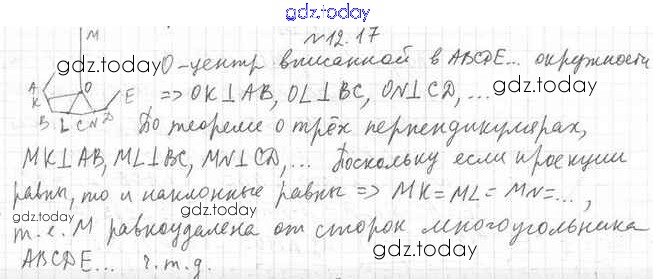 gdz.today
M
№12.17
О-центр вписанной в ABCDE... окружности
gdz.today
gdz.today
A
K
O
E
B L C N D
=> OK⊥AB, OL⊥BC, ON⊥CD, ...
По теореме о трёх перпендикулярах,
MK⊥AB, ML⊥BC, MN⊥CD, ... Поскольку если проекции
gdz.today
равны, то и наклонные равны => MK=ML=MN=...,
gdz.today
т.е. M равноудалена от сторон многоугольника
gdz.today
ABCDE... ч.т.д.
gdz.today